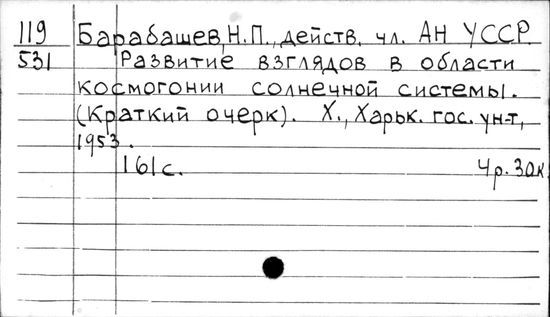 119 Барабашев, Н.П., действ. чл. АН УССР.
531 Развитие взглядов в области
космогонии солнечной системы.
(Краткий очерк). Х., Харьк. гос. ун-т,
1953.
161с. 4р. 30к.